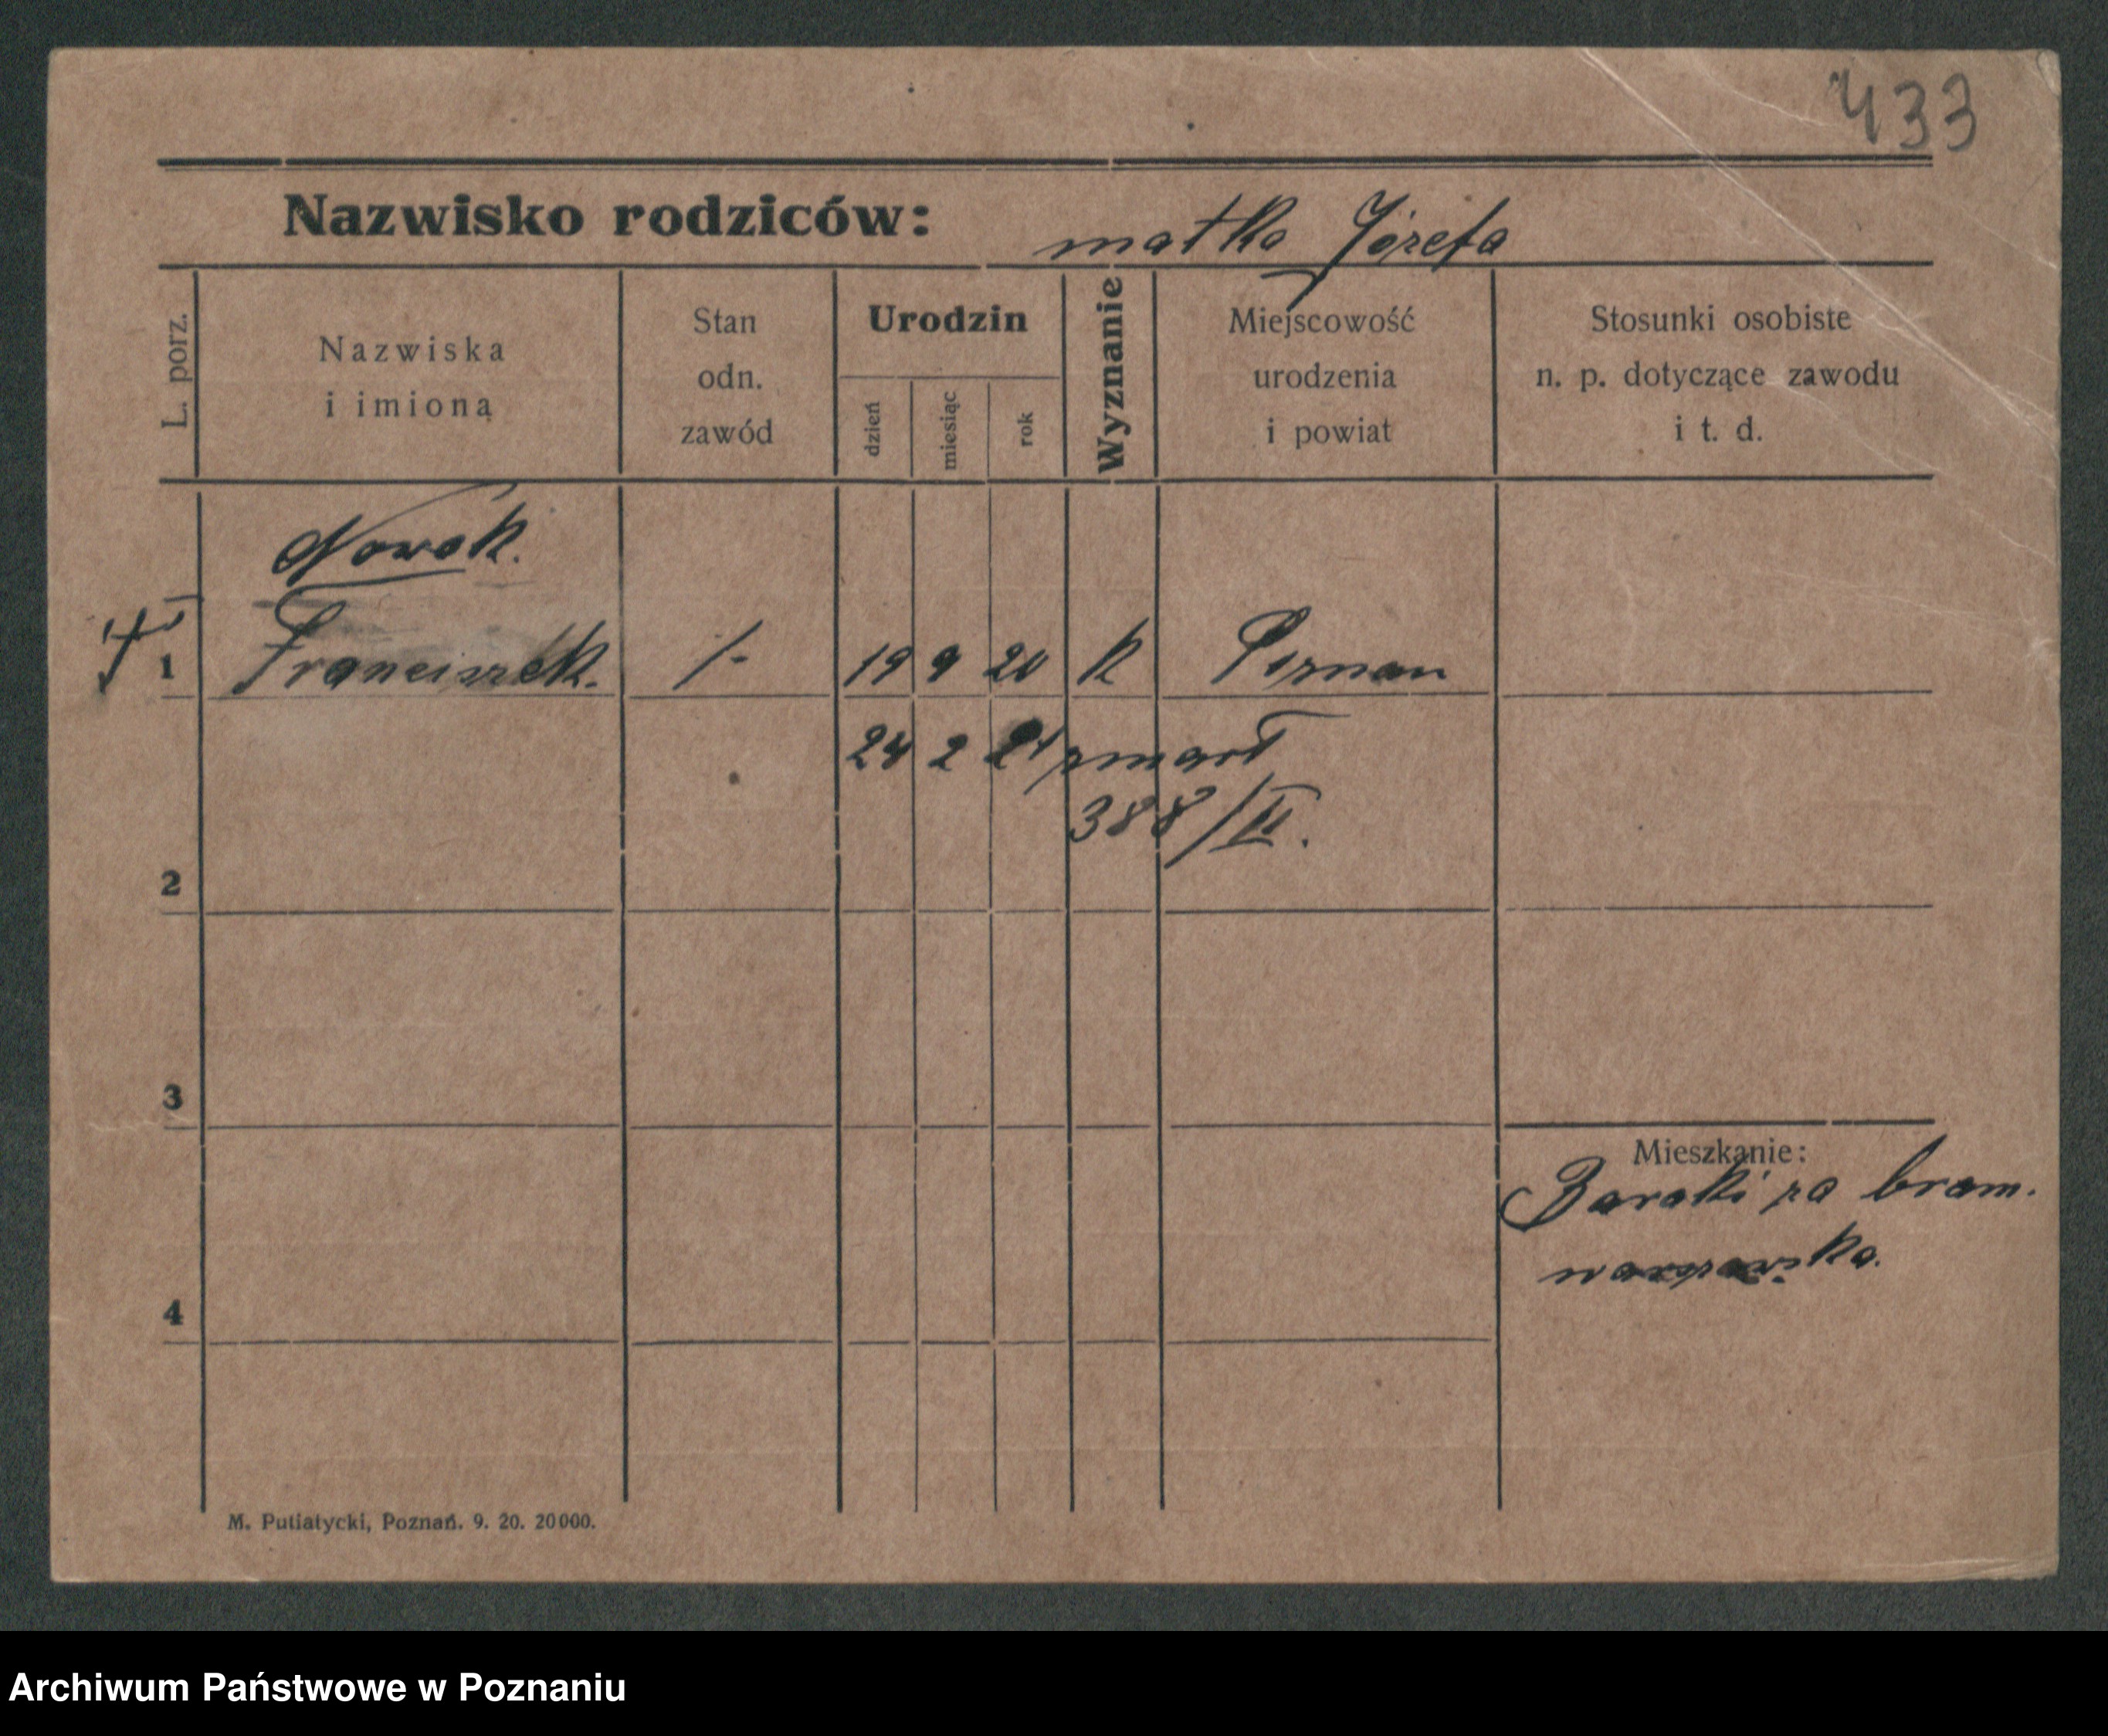 433
Nazwisko rodziców: matka Józefa
L. porz.
Nazwiska
i imiona
Stan
odn.
zawód
Urodzin
dzień
miesiąc
rok
Wyznanie
Miejscowość
urodzenia
i powiat
Stosunki osobiste
n. p. dotyczące zawodu
i t. d.
Nowak.
1 Franciszek. /- 19 9 20 k Poznan
24 2 21 zmarł
388/II.
2
3
Mieszkanie:
Baraki za bram.
warszawska.
4
M. Putiatycki, Poznań. 9. 20. 20000.
Archiwum Państwowe w Poznaniu